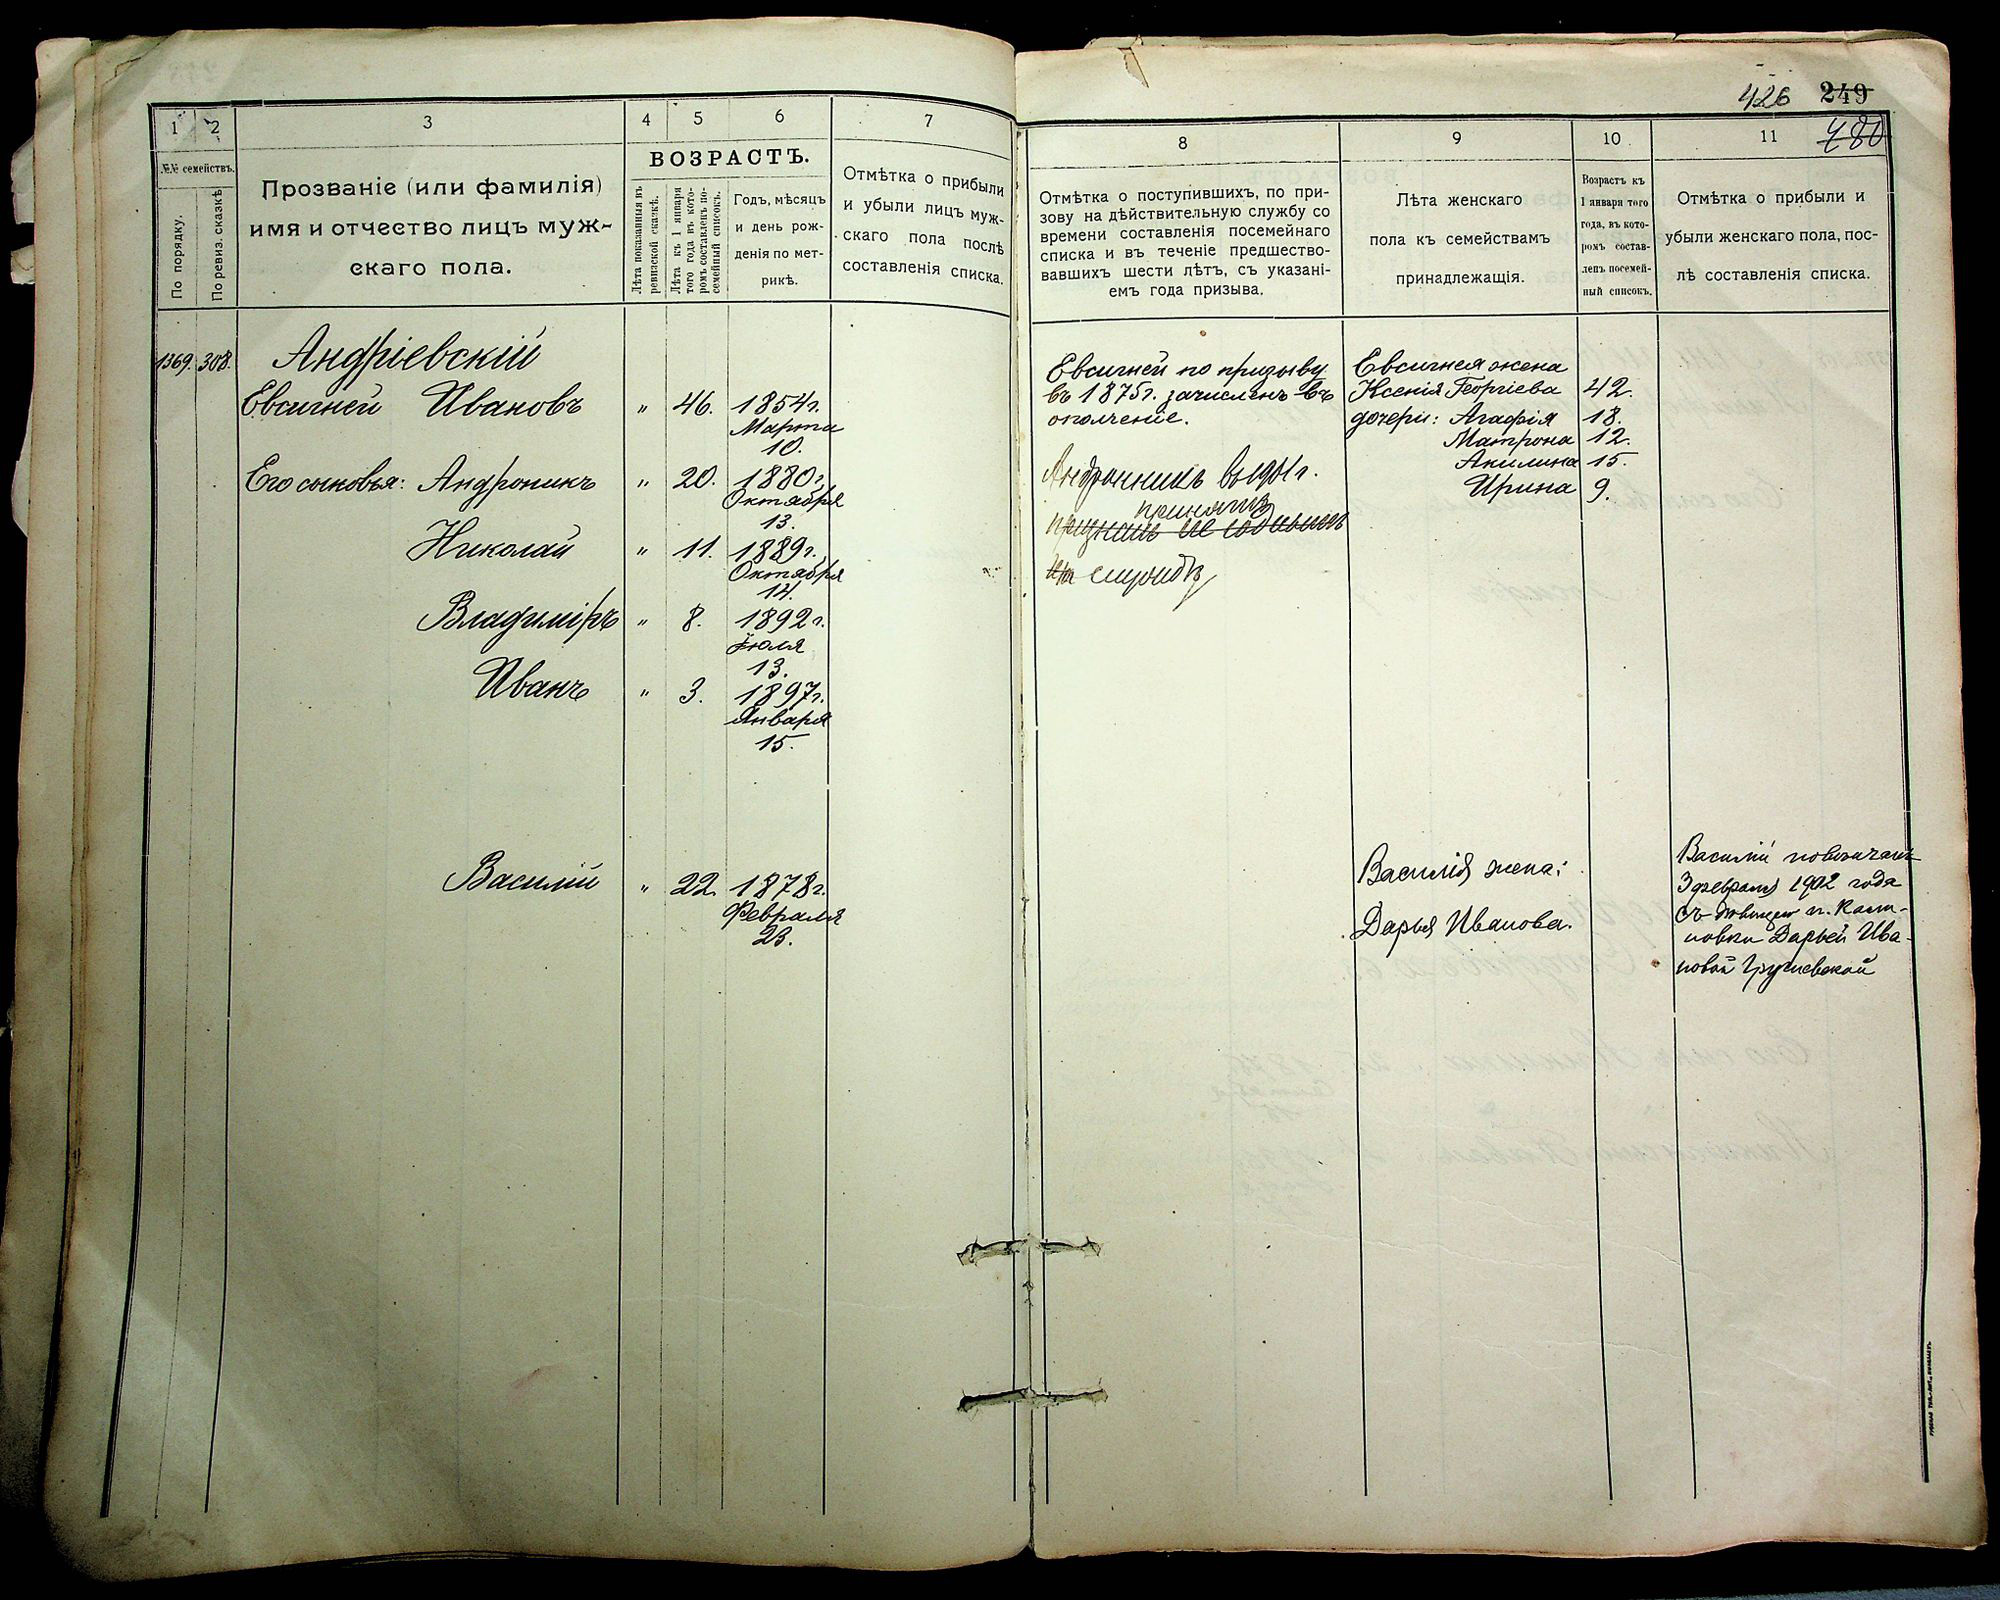 426 249
480
1 2 3 4 5 6 7
№№ семействъ.
По порядку.
По ревиз. сказкѣ
Прозваніе (или фамилія)
имя и отчество лицъ муж-
скаго пола.
ВОЗРАСТЪ.
Лѣта показанныя въ
ревизской сказкѣ.
Лѣта къ 1 января
того года въ кото-
ромъ составленъ по-
семейный списокъ.
Годъ, мѣсяцъ
и день рож-
денія по мет-
рикѣ.
Отмѣтка о прибыли
и убыли лицъ муж-
скаго пола послѣ
составленія списка.
1369. 308. Андріевскій
Евсигней Ивановъ " 46. 1854 г.
Марта
10.
Его сыновья: Андроникъ " 20. 1880 г.
Октября
13.
Николай " 11. 1889 г.
Октября
14.
Владиміръ " 8. 1892 г.
Іюля
13.
Иванъ " 3. 1897 г.
Января
15.
Василій " 22. 1878 г.
Февраля
23.
8 9 10 11
Отмѣтка о поступившихъ, по при-
зову на дѣйствительную службу со
времени составленія посемейнаго
списка и въ теченіе предшество-
вавшихъ шести лѣтъ, съ указані-
емъ года призыва.
Лѣта женскаго
пола къ семействамъ
принадлежащія.
Возрастъ къ
1 января того
года, въ кото-
ромъ состав-
ленъ посемей-
ный списокъ.
Отмѣтка о прибыли и
убыли женскаго пола, пос-
лѣ составленія списка.
Евсигней по призыву
въ 1875 г. зачисленъ въ
ополченіе.
Андронникъ въ 1901 г.
принятъ
признанъ не годнымъ
на службу
Евсигнея жена
Ксенія Георгіева 42.
дочери: Агафія 18.
Матрона 12.
Акилина 15.
Ирина 9.
Василія жена:
Дарья Иванова.
Василій повѣнчанъ
3 февраля 1902 года
съ дѣвицею
Дарьей Ива-
новой